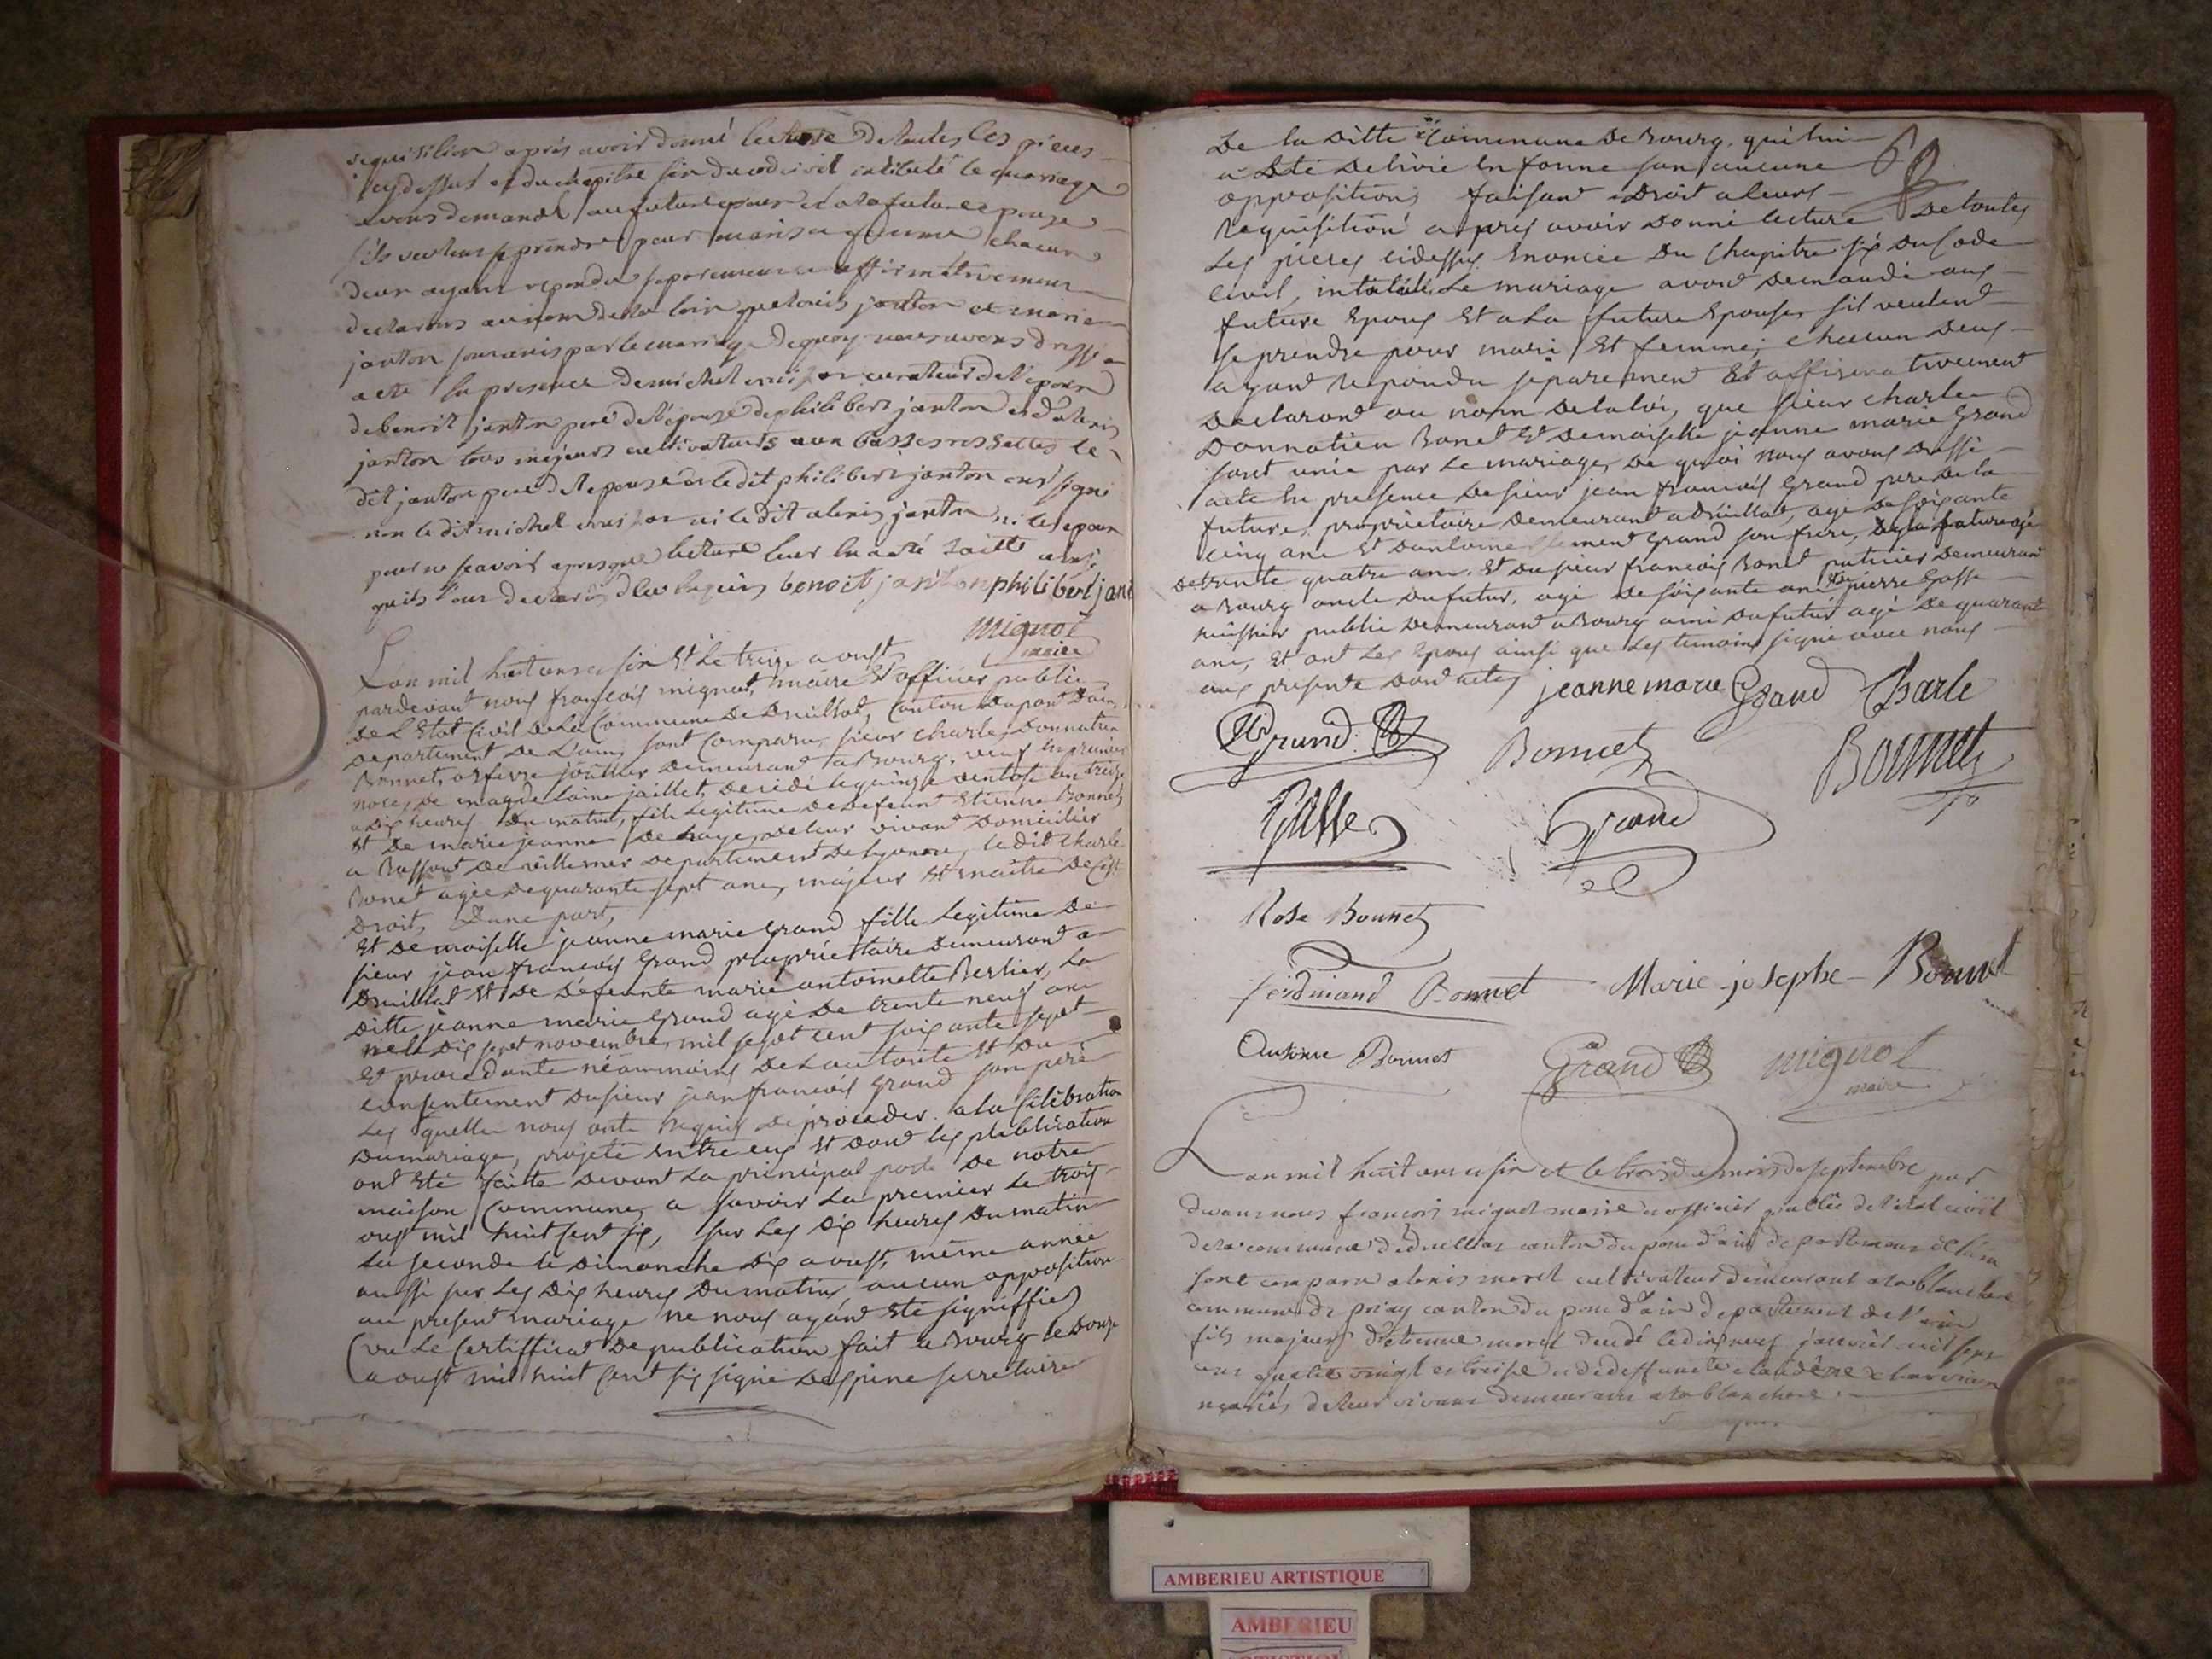 requisition après avoir donné lecture de toutes les pieces
cy dessus et du chapitre six du code civil intitulé le mariage
avons demandé au futur epoux et a la future epouse
s'ils veulent se prendre pour maris et femme chacun
deux ayant repondu separement et affirmativement
declarons au nom de la loi que louis janton et marie
janton sont unis par le mariage de quoy nous avons dressé
acte en presence de michel curateur de l'epoux
de benoit janton pere de l'epouse de philibert janton et d'alexis
janton tous majeurs cultivateurs aux basses le
dit janton pere de l'epouse et le dit philibert janton ont signé
non le dit michel ni le dit alexis janton ni les epoux
pour ne scavoir apres que lecture leur en a eté faitte ainsi
qu'ils l'ont declaré de ce requis benoit janton philibert jant
mignot
maire
L'an mil huit cent six Et le treize aoust
pardevant nous françois mignot, maire Et officier public
de L'Etat Civil de la Commune de Druillat, Canton du pont d'ain,
departement de L'ain, sont Comparu, sieur charle, Donnatien
Bonnet, orfevre joûillier demeurant a Bourg, veuf en premier
noce, de magdelaine jaillet, décédé le quinze ventose an treize
a dix heures du matin, fils Legitime de defeunt Etienne Bonnet
Et de marie jeanne de haye, de leur vivant domicilier
a departement de Lyonne, le dit charle
Bonet agée de quarante sept ans, majeur Et maitre de ses
Droit, d'une part,
Et demoiselle jeanne marie Grand fille Legitime de
sieur jean francois Grand propriétaire demeurant a
Druillat Et de Défeunte marie antoinette Berlier, La
ditte jeanne marie Grand agé de trente neuf ans
née le dix sept novembre, mil sept cent soixante sept
Et procedante néammoins de Lautorité Et du
consentement du sieur jean francois Grand son pere
Les quelle nous onts requis de proceder a la Célébration
du mariage, projeté entre eux Et dont les publication
ont Eté faitte devant La principal porte de notre
maison Commune, a savoir La premier le trois
oust mil huit cent six, sur Les dix heures du matin
La seconde le dimanche dix aoust, même année
aussi sur Les dix heures du matin, aucun opposition
au present mariage ne nous ayant Eté signiffiee
vu Le Certifficat de publication fait a Bourg le douze
aoust mil huit cent six signé Despine secretaire
De la ditte Commune de Bourg, qui lui
a Eté Delivré en forme sans aucune
oppositions faisant droit a leurs
Requisition apres avoir donné lecture de toutes
Les pieces cidessus Enoncée du Chapitre six du Code
Civil, intitulé Le mariage avons demandé aux
future Epoux Et a La future Epouse, s'il veulent
se prendre pour mari Et femme; chacun deux
ayant repondu separement Et affirmativement
Declarons au nom de la loi, que sieur charle
Donnatien Bonet Et demoiselle jeanne marie Grand
sont unie par Le mariage, de quoi nous avons dressé
acte En presence de sieur jean francois Grand pere de la
future, propriétaire demeurant a Druillat, agé de soixante
cinq ans Et d'antoine Grand son frere, de la future agé
de trente quatre ans. Et du sieur francois Bonet patissier demeurant
a Bourg oncle du futur, agé de soixante ans Et pierre Gasse
huissier public demeurant a Bourg ami du futur agé de quarante
ans, Et ont Les Epoux ainsi que Les temoins signé avec nous
aux presente dont acte, jeanne marie Grand Charle
Grand Bonnet Bonnet
Gasse Grand
Rose Bonnet
ferdinand Bonnet Marie-josephe Bonnet
Antoine Bonnet Grand mignot
maire
L'an mil huit cent six et le trois du mois de septembre par
devant nous françois mignot maire et officier public de l'etat civil
de la commune de druillat canton du pont d'ain departement de l'ain
sont comparu alexis morel cultivateur demeurant a la blanchere
commune de priay canton du pont d'ain departement de l'ain
fils majeur d'etienne morel decedé le dix neuf janvier mil sept
cent quatre vingt et treise et de deffuncte claudine
mariés de leur vivant demeurant a la blanchere
AMBERIEU ARTISTIQUE
AMBERIEU